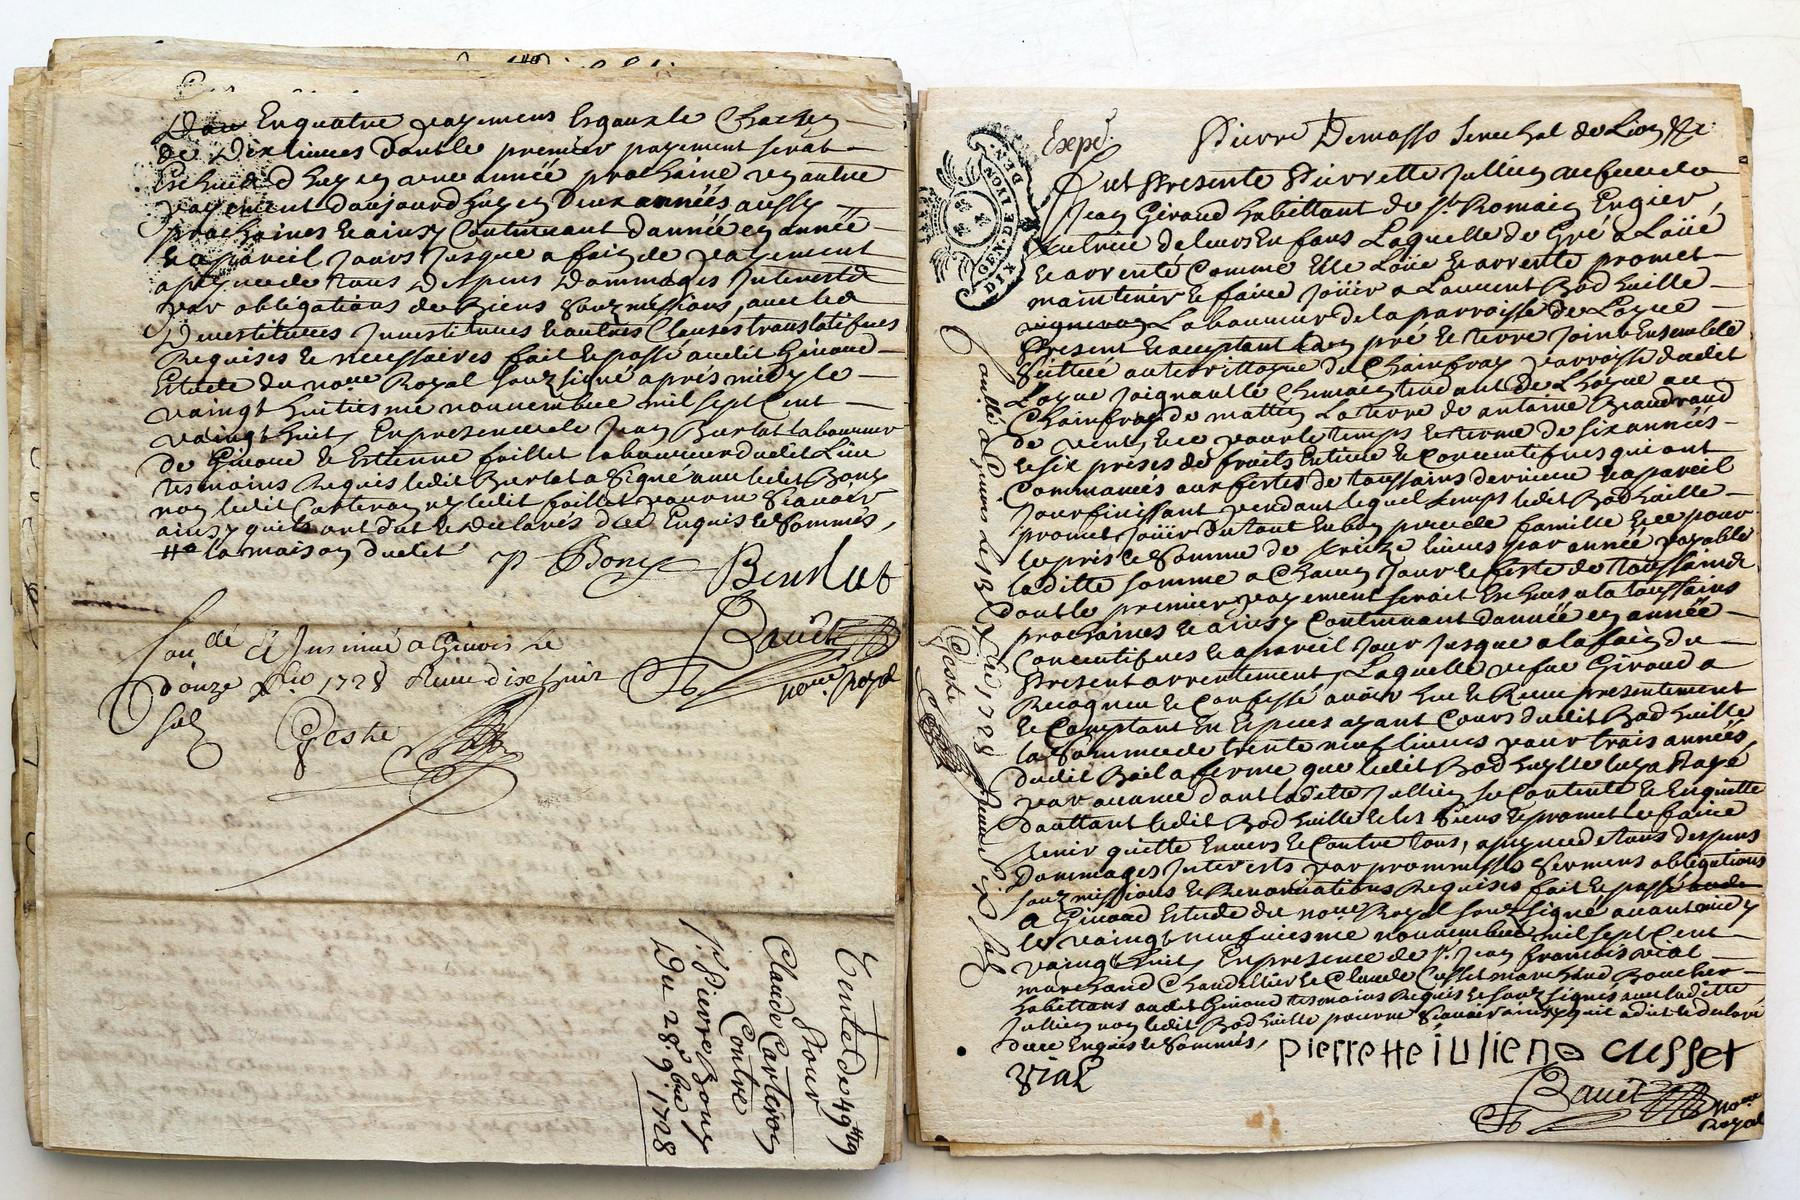 En quatre payemens Esgaux de Chacun
de Dix livres dont le premier payement serat
Escheu d huy en une année prochaine un autre
payement d aujourd huy en Deux années aussy
prochaines & ainsy Continuant d année en année
& a pareil Jours Jusque a fait de payement
a peyne de tous Despens Dommages Interests
par obligations de Biens Souzmissions, avec les
Devestitures Investitures & autres Clauses translatifves
Requises & necessaires fait & passé audit Givord
Estude du no.re Royal souz signé aprés midy le
vaingt huitiesme novembre mil sept Cent
vaingt huit, En presence de Jean Burlat laboureur
de Givord & Estienne faillet laboureur dudit Lieu
tesmoins Requis ledit Burlat a Signé avec ledit Bony
non ledit Carteron ny ledit faillet pour ne Scavoir
ainsy quils ont dit & declarés de ce Enquis & Sommés,
la maison dudit
P Bony Burlat
Bauet
no.re Royal
Con.lé & Insinué a Givors le
donze x.bre 1728 Receu dix huit
sols
Geste
Vente de 49 #
Pour
Claude Carteron
Contre
s.r Pierre Bony
Du 28.e 9.bre 1728
Expé.
Pierre Demasso Senechal de Lion &c
fut Presente Pierrette Jullien vefve de
Jean Giroud habittant de S.t Romain En gier,
tutrice de leurs Enfans Laquelle de Gré a Loüé
& arrenté Comme Elle Loüe & arrente promet
maintenir & faire Joüir a Laurent Bad huille
Laboureur de la parroisse de Loyre
Present & acceptant un pré & terre Joint Ensemble
Scittué au territoyre de Chainfray parroisse dudit
Loyre Joignant le Chemin tendant de Loyre au
Chainfray de mattin La terre de antoine Beaudrand
de vent, & ce pour le temps & terme de six années
& six prises de fruits Entiere & Concecutifves qui ont
Commancés aux festes de toussains derniere & a pareil
Jour finissant pendant lequel temps ledit Bad huille
promet Joüir du tout En bon pere de famille & ce pour
le pris & Somme de treize livres par année payable
laditte somme a Chacun Jour & feste de toussaincts
dont le premier payement serait Escheu a la toussains
prochaines & ainsy Continuant d année en année
Concecutifves & a pareil Jour Jusque a la fin du
Present arrentement, Laquelle vefve Giroud a
Recogneu & Confessé avoir heu & Receu presentement
& Comptant En Especes ayant Cours dudit Bad huille
la Somme de trente neuf livres pour trois années,
dudit Bail a ferme que ledit Bad huylle luy a Payé
par avance dont laditte Jullien se Contente & En quitte
dautant ledit Bad huille & les Siens & promet les faire
tenir quitte Envers & Contre tous, a peyne de tous despens
Dommages Interests par prommesses Sermens obligations
souz missions & Renonciations Requises fait & passé
a Givord Estude du no.re Royal souz signé avant midy
le vaingt neufviesme novembre mil sept Cent
vaingt huit, En presence de s.r Jean francois vial
marchand Chandellier & Claude Cusset marchand Boucher
habittans audit Givord tesmoins Requis & souz signés avec laditte
Jullien non ledit Bad huille pour ne Scavoir ainsy quil a dit & declaré
de ce Enquis & Sommés,
pierrette iuliene cusset
vial
Bauet
no.re
Royal
Con.llé a Givors le 13 x.bre 1728 Receu dix sols
Geste
GEN. DE LYON.
DIX DEN.